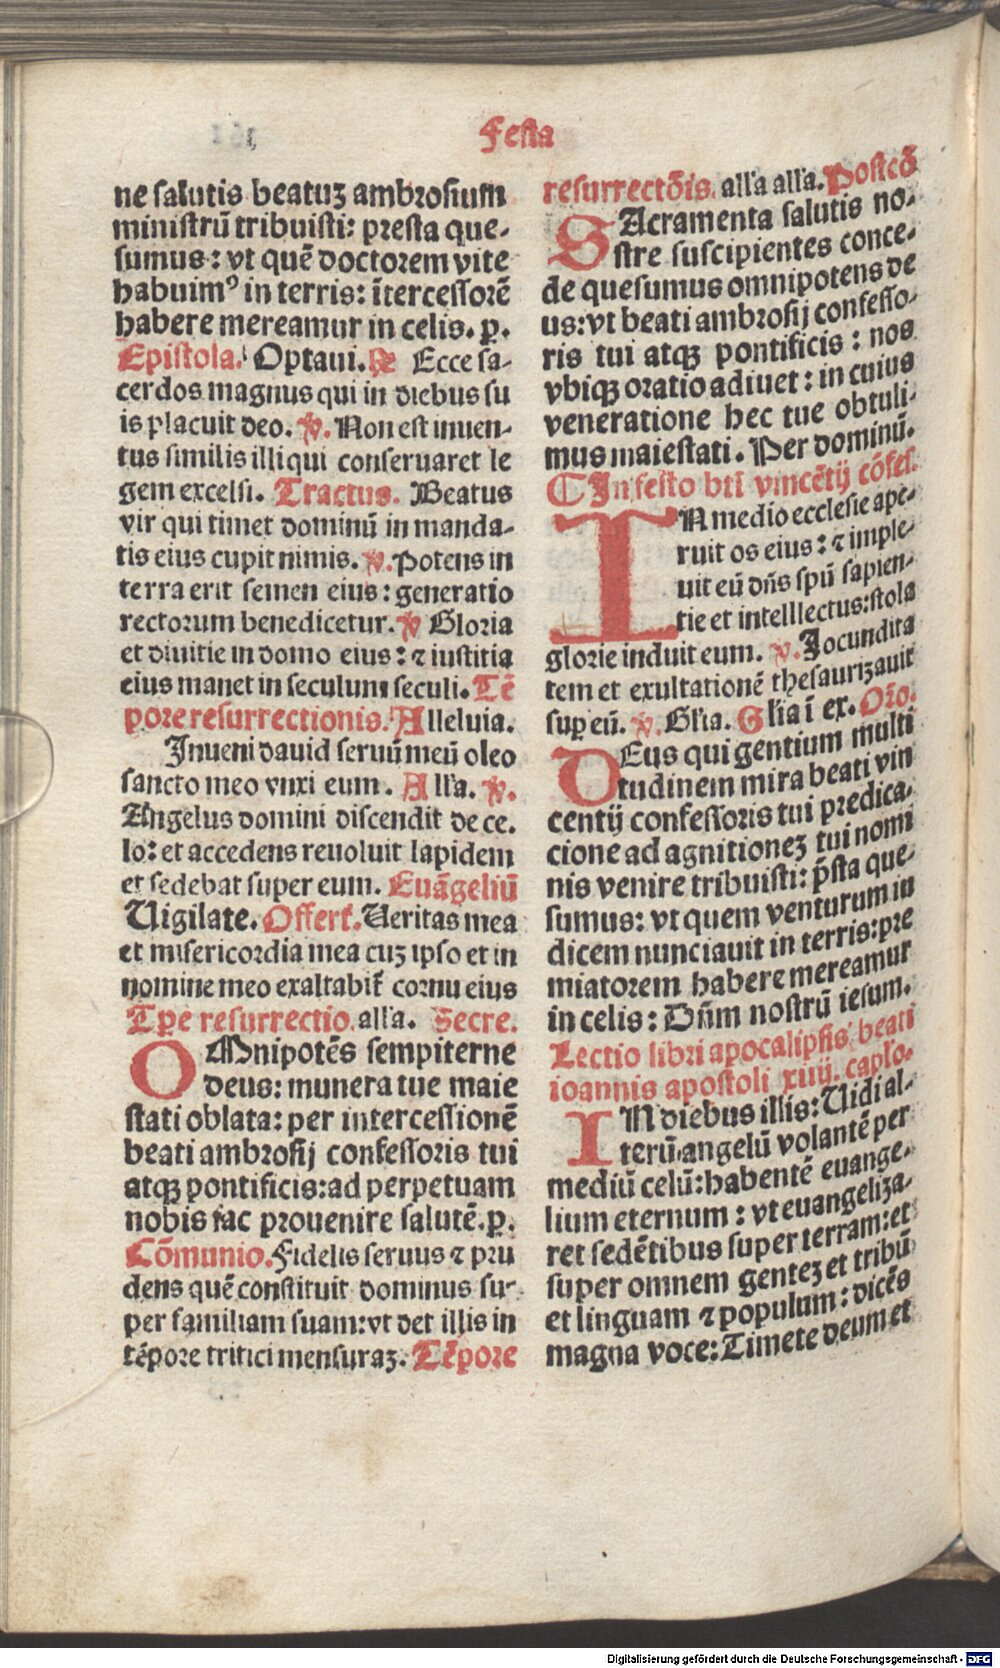 Festa
ne salutis beatuʒ ambrosium
ministrū tribuisti: presta que-
sumus: vt quē doctorem vite
habuimꝰ in terris: ītercessorē
habere mereamur in celis. p̱.
Epistola. Optaui. ℞ Ecce sa-
cerdos magnus qui in diebus su
is placuit deo. ℣. Non est inuen-
tus similis illi qui conseruaret le
gem excelsi. Tractus. Beatus
vir qui timet dominū in manda-
tis eius cupit nimis. ℣. Potens in
terra erit semen eius: generatio
rectorum benedicetur. ℣ Gloria
et diuitie in domo eius: ⁊ iustitia
eius manet in seculum seculi. Tē
pore resurrectionis. Alleluia.
Inueni dauid seruū meū oleo
sancto meo vnxi eum. All'a. ℣.
Angelus domini discendit de ce.
lo: et accedens reuoluit lapidem
et sedebat super eum. Euāgeliū
Uigilate. Offert̄. Ueritas mea
et misericordia mea cuʒ ipso et in
nomine meo exaltabit̄ cornu eius
Tꝑe resurrectio. all'a. Secre.
OMnipotēs sempiterne
deus: munera tue maie
stati oblata: per intercessionē
beati ambrosij confessoris tui
atqʒ pontificis: ad perpetuam
nobis fac prouenire salutē. p̱.
Cōmunio. Fidelis seruus ⁊ pru
dens quē constituit dominus su-
per familiam suam: vt det illis in
tēpore tritici mensuraʒ. Tēpore
resurrectōis. all'a all'a. Postcō
SAcramenta salutis no-
stre suscipientes conce-
de quesumus omnipotens de
us: vt beati ambrosij confesso-
ris tui atqʒ pontificis: nos
vbiqʒ oratio adiuet: in cuius
veneratione hec tue obtuli-
mus maiestati. Per dominū.
¶ In festo bt̄i vincētij cōfes.
IN medio ecclesie ape-
ruit os eius: ⁊ imple-
uit eū dn̄s spū sapien-
tie et intelllectus: stola
glorie induit eum. ℣. Iocundita
tem et exultationē thesaurizauit
suꝑ eū. ℣. Gl'ia. Gl'ia ī ex. Orō.
DEus qui gentium multi
tudinem mira beati vin
centij confessoris tui predica-
cione ad agnitioneʒ tui nomi
nis venire tribuisti: p̄sta que-
sumus: vt quem venturum iu
dicem nunciauit in terris: pre
miatorem habere mereamur
in celis: Dn̄m nostrū iesum.
Lectio libri apocalipsis beati
ioannis apostoli xiiij. capl'o.
IN diebus illis: Uidi al-
terū angelū volantē per
mediū celū: habentē euange-
lium eternum: vt euangeliza-
ret sedētibus super terram: et
super omnem genteʒ et tribū
et linguam ⁊ populum: dicēs
magna voce: Timete deum et
Digitalisierung gefördert durch die Deutsche Forschungsgemeinschaft - DFG